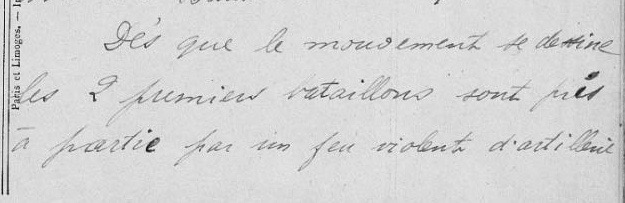 Dès que le mouvement se dessine
les 2 premiers bataillons sont pris
à partie par un feu violent d'artillerie
Paris et Limoges. —